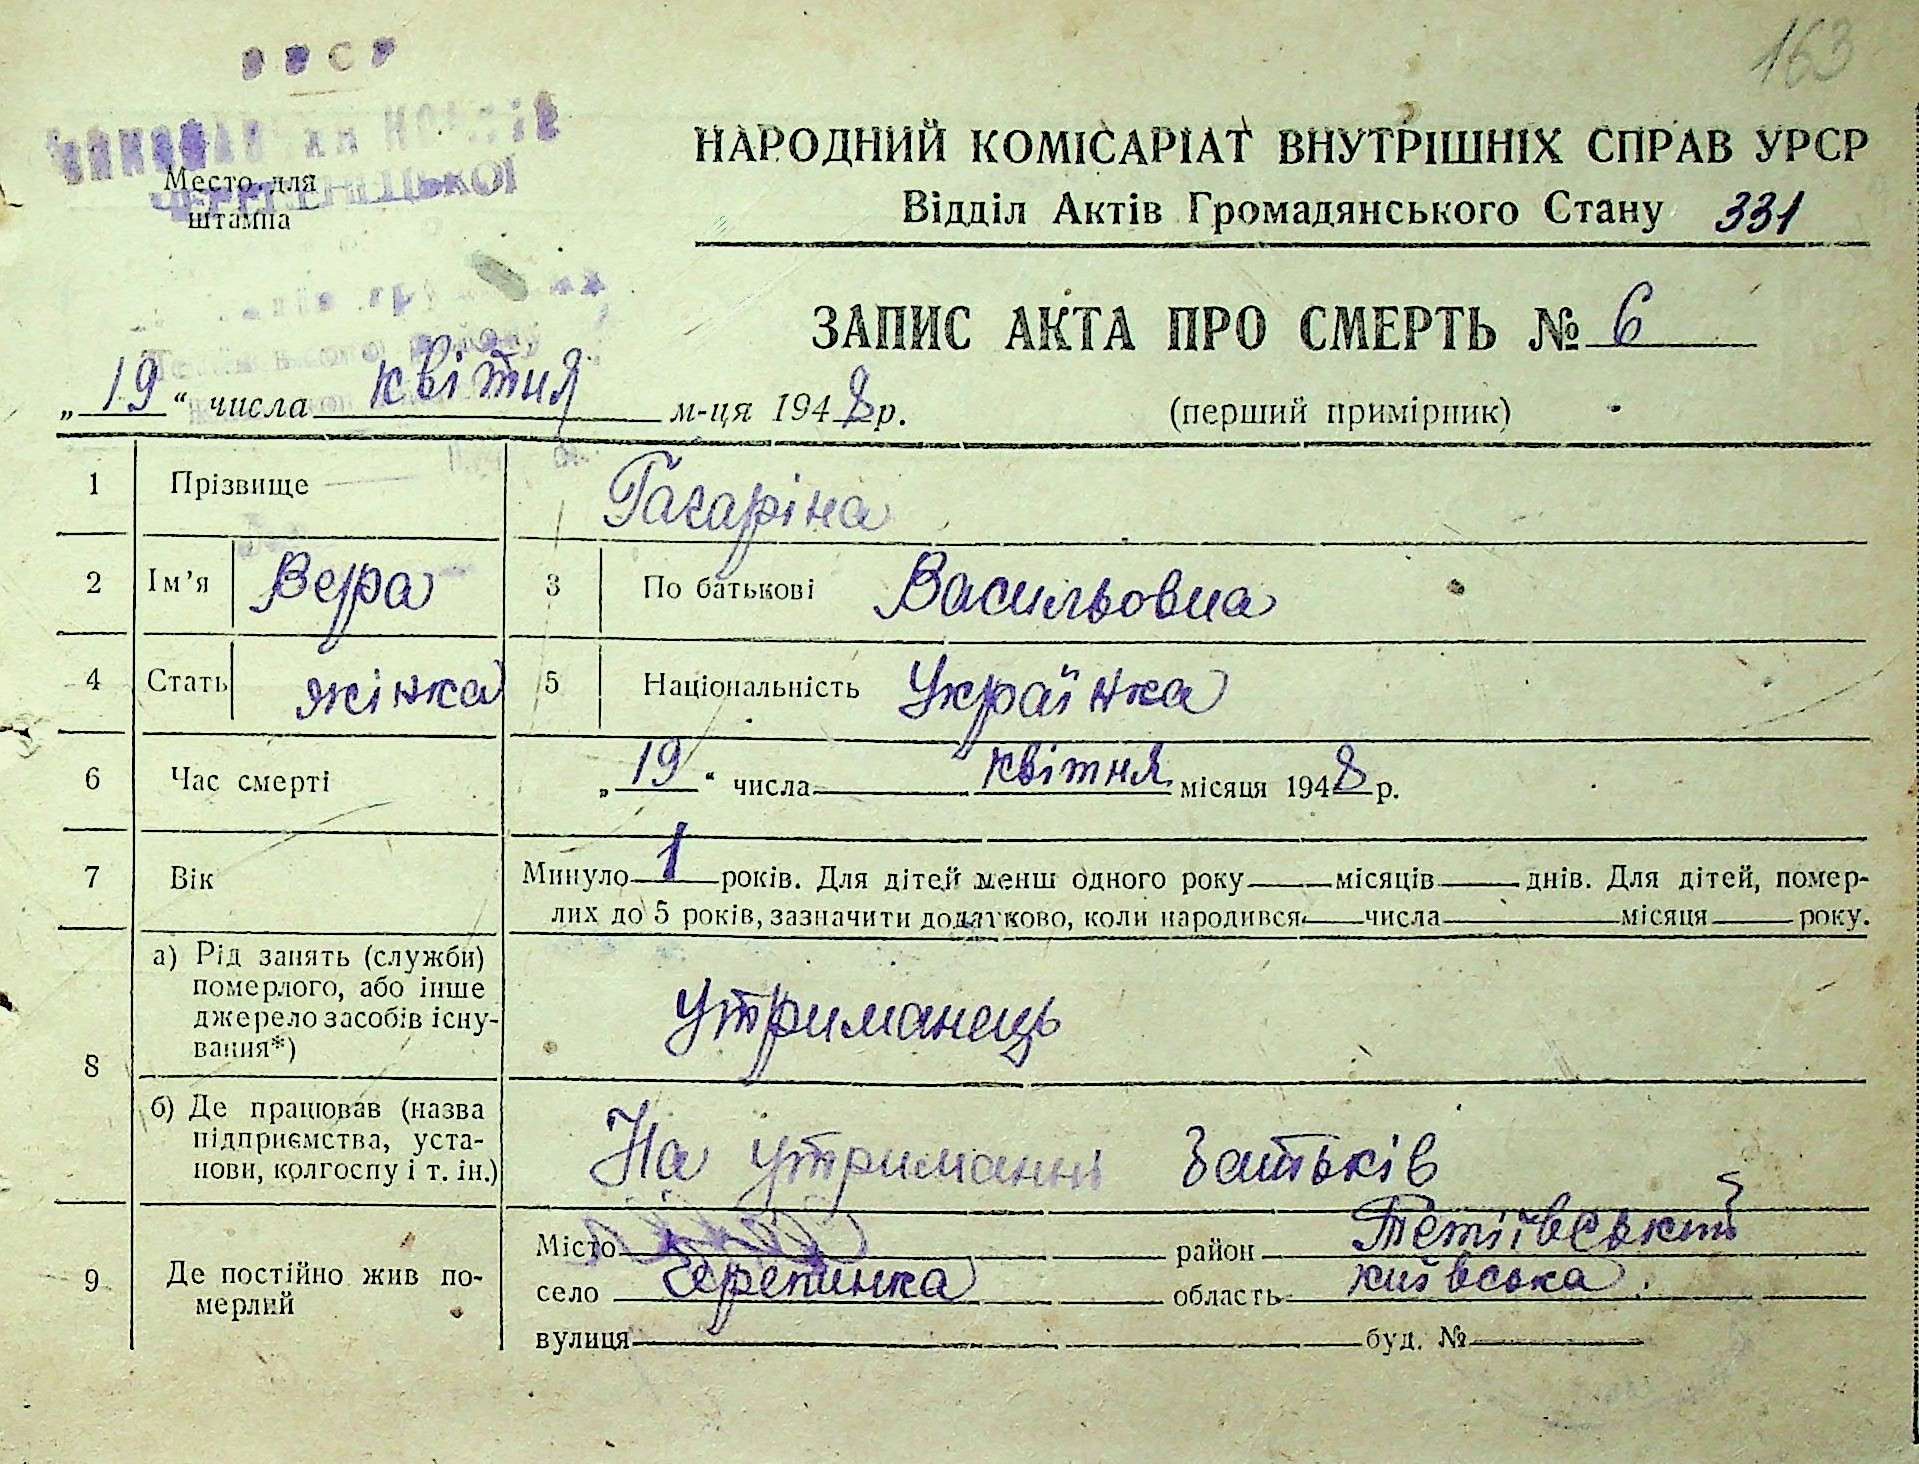 163
УРСР
Место для
штампа
НАРОДНИЙ КОМІСАРІАТ ВНУТРІШНІХ СПРАВ УРСР
Відділ Актів Громадянського Стану 331
ЗАПИС АКТА ПРО СМЕРТЬ № 6
„ 19 “ числа квітня м-ця 1948 р.
(перший примірник)
1 Прізвище Гагаріна
2 Ім’я Вера 3 По батькові Васильовна
4 Стать жінка 5 Національність Українка
6 Час смерті „ 19 “ числа квітня місяця 1948 р.
7 Вік Минуло 1 років. Для дітей менш одного року місяців днів. Для дітей, помер-
лих до 5 років, зазначити додатково, коли народився числа місяця року.
8 а) Рід занять (служби)
померлого, або інше
джерело засобів існу-
вання*)
утриманець
б) Де працював (назва
підприємства, уста-
нови, колгоспу і т. ін.)
На утриманні батьків
9 Де постійно жив по-
мерлий
Місто район Тетіївський
село Черепинка область київська
вулиця буд. №